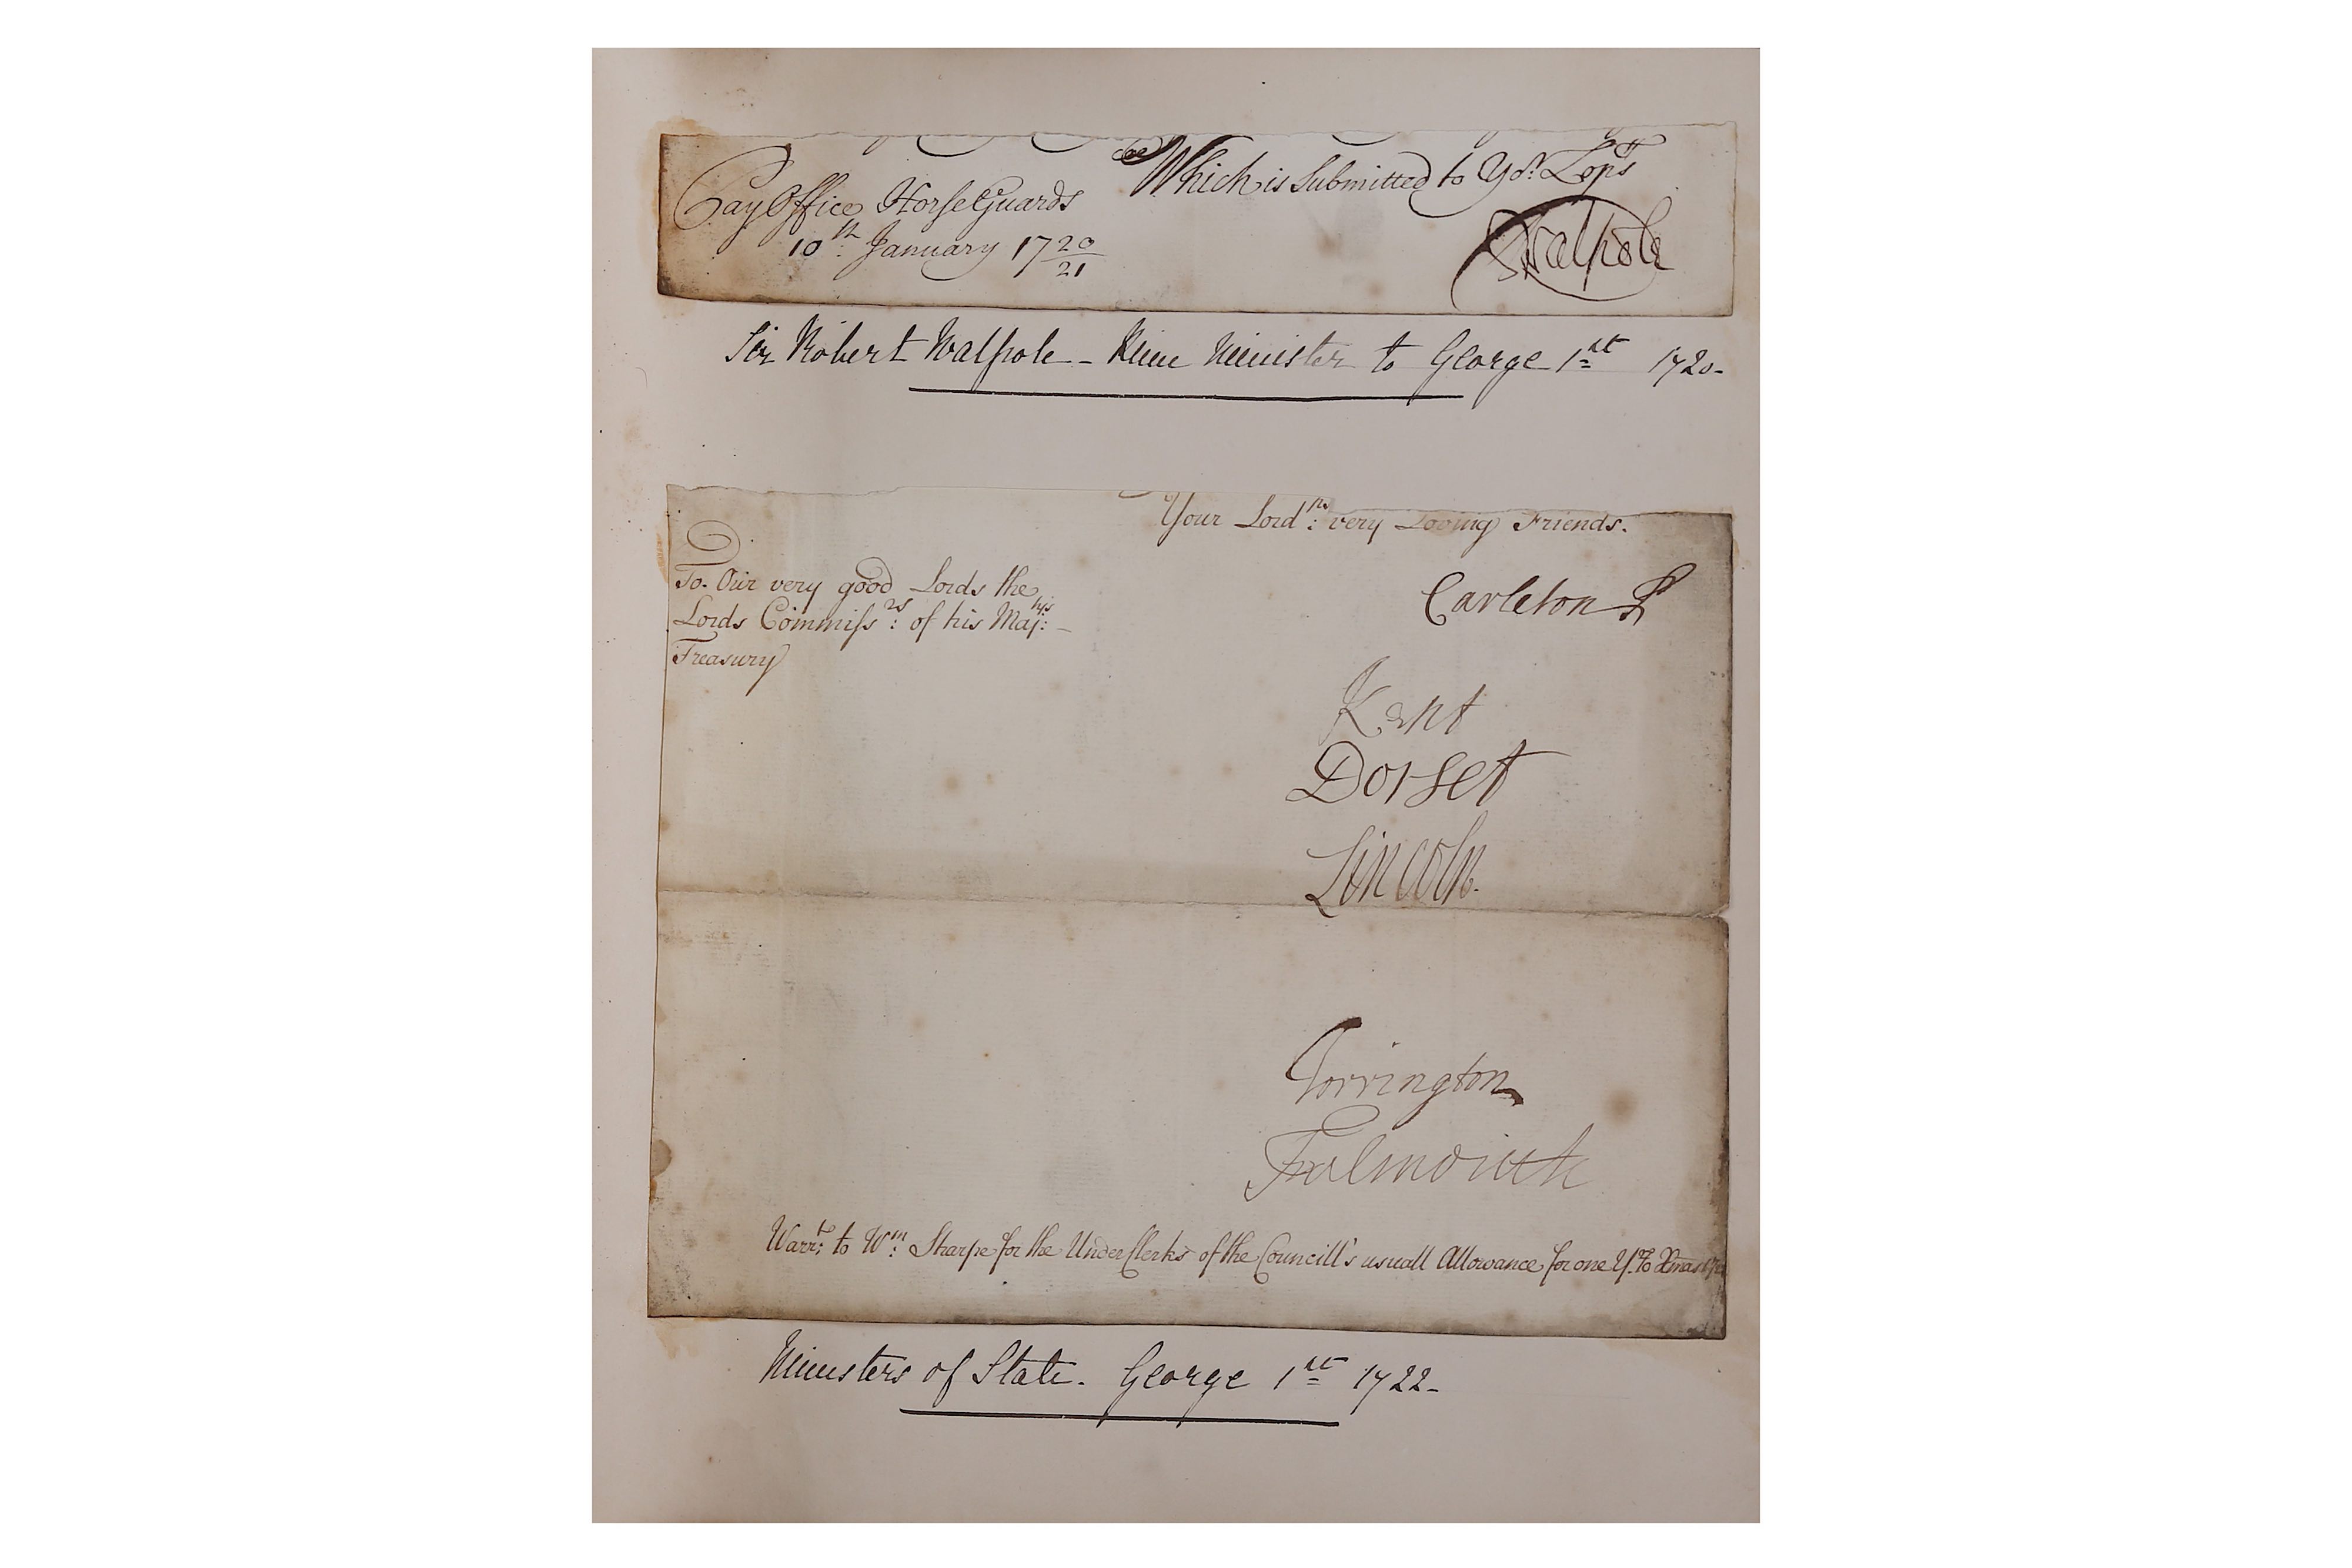 Which is Submitted to Yor. Lopps
Pay Office Horse Guards
10th. January 1720/21
RWalpole
Sir Robert Walpole - Prime Minister to George 1st 1720-
Your Lordps: very Loving Friends.
To Our very good Lords the
Lords Commissrs: of his Majtys: -
Treasury
Carleton P
Kent
Dorset
Lincoln.
Torrington
Falmouth
Warrt: to Wm: Sharpe for the Under Clerks of the Councill's usuall Allowance for one Yr. to Xmas
Ministers of State. George 1st 1722-